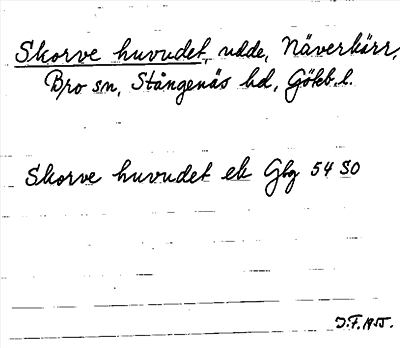 Skorve huvudet, udde, Näverkärr,
Bro sn, Stångenäs hd, Götebl. l.
Skorve huvudet ek Gbg 54 SO
J.F. 1955.